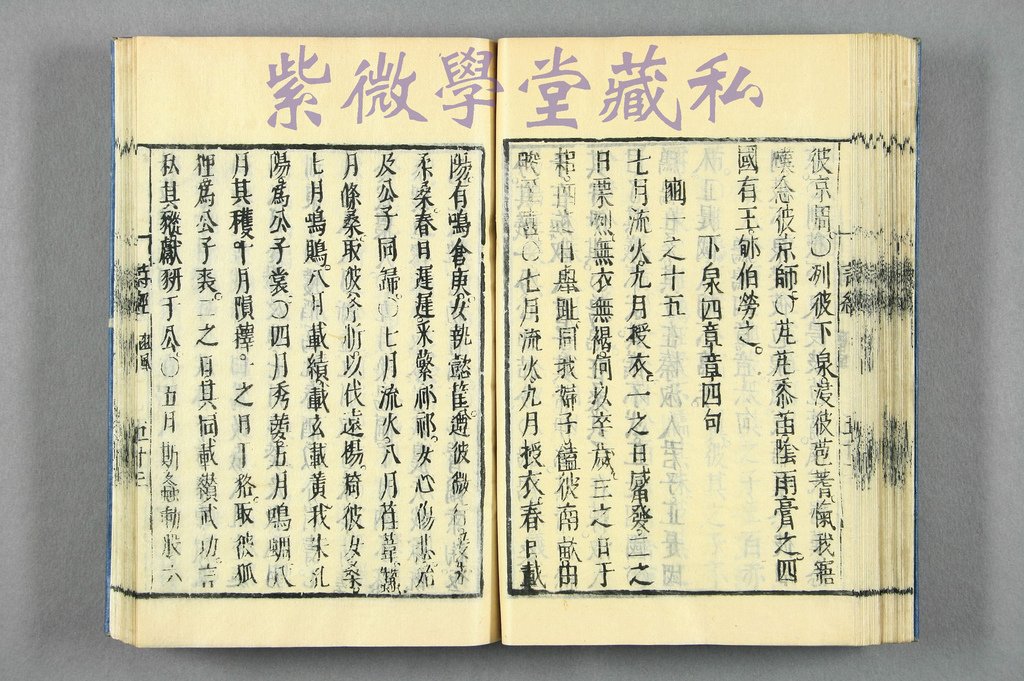 紫微學堂藏私
彼京周〇列彼下泉浸彼苞蓍愾我寤
嘆念彼京師〇芃芃黍苗陰雨膏之四
國有王郇伯勞之。
下泉四章章四句
豳一之十五
七月流火九月授衣。一之日觱發二之
日栗烈無衣無褐何以卒歲三之日于
耜四之日舉趾同我婦子饁彼南畝田
畯至喜〇七月流火九月授衣春日載
陽有鳴倉庚女執懿筐遵彼微行爰求
柔桑。春日遲遲采蘩祁祁。女心傷悲殆
及公子同歸〇七月流火八月萑葦蠶
月條桑。取彼斧斨以伐遠揚。猗彼女桑
七月鳴鵙。八月載績載玄載黃我朱孔
陽。為公子裳〇四月秀葽五月鳴蜩八
月其穫。十月隕蘀。一之日于貉。取彼狐
狸為公子裘二之日其同載纘武功言
私其豵獻豜于公〇五月斯螽動股六
詩經 豳風